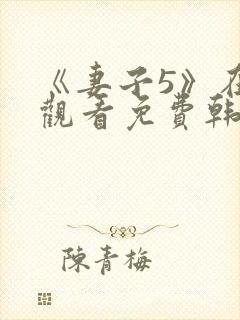 《妻子5》在
觀看免費韓
陳青梅